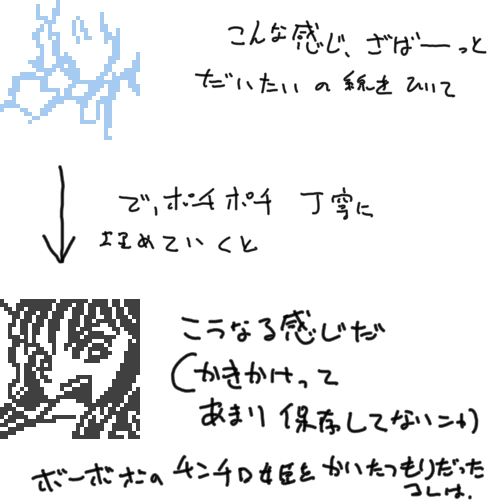 こんな感じ、ざばーっと
だいたいの線をひいて
で、ポチポチ 丁寧に
埋めていくと
こうなる感じだ
(かきかけって
あまり保存してないンす)
ボーボボの チンチロ姫を かいたつもりだった
コレは.